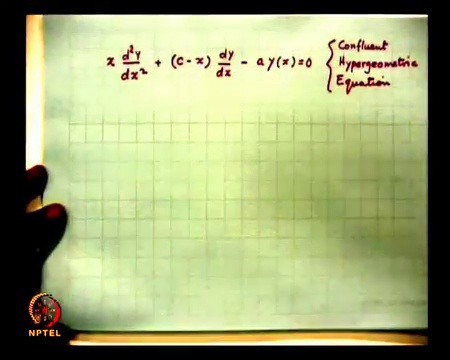 x d²y/dx² + (c - x) dy/dx - a y(x) = 0
{ Confluent
Hypergeometric
Equation
NPTEL